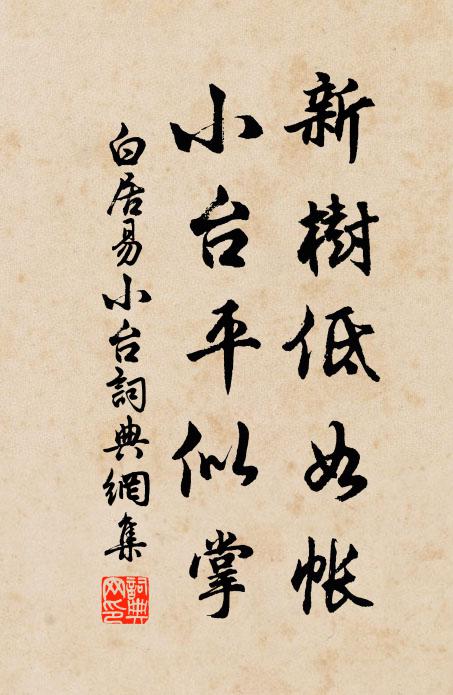 新樹低如帳
小台平似掌
白居易小台詞典網集
詞典网印